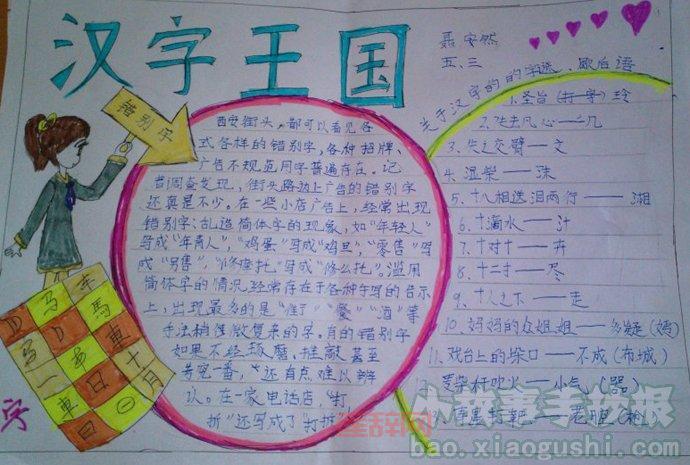 汉字王国
聂安然
五、三
错别字
西安街头，都可以看见各
式各样的错别字，各种招牌、
广告不规范用字普遍存在。记
者调查发现，街头路边上广告的错别字
还真是不少。在一些小店广告上，经常出现
错别字、乱造简体字的现象，如“年轻人”
写成“年青人”，“鸡蛋”写成“鸡旦”，“零售”写
成“另售”，“修摩托”写成“修么托”。滥用
简体字的情况经常存在于各种手写的告示
上，出现最多的是“餐”“酒”等
手法稍微复杂的字。有的错别字
如果不经琢磨、推敲甚至
考究一番，还有点难以辨
认。在一家电话店，“打
折”还写成了“打拆”
关于汉字的的字谜、歇后语
1.圣旨（打一字）玲
2.——几
3.失之交臂——文
4.湿柴——珠
5.十八相送泪两行——湘
6.十滴水——汁
7.十对十——卉
8.十二寸——尽
9.十人之下——走
10.妈妈的众姐妹——多疑（姨）
11.戏台上的垛口——不成（布城）
12.荽杆吹火——小气（器）
13.打靶——老
马 车
D 马 馬
D 車
一 車 十
車 日 月
日
字
小故事手抄报
bao.xiaogushi.com